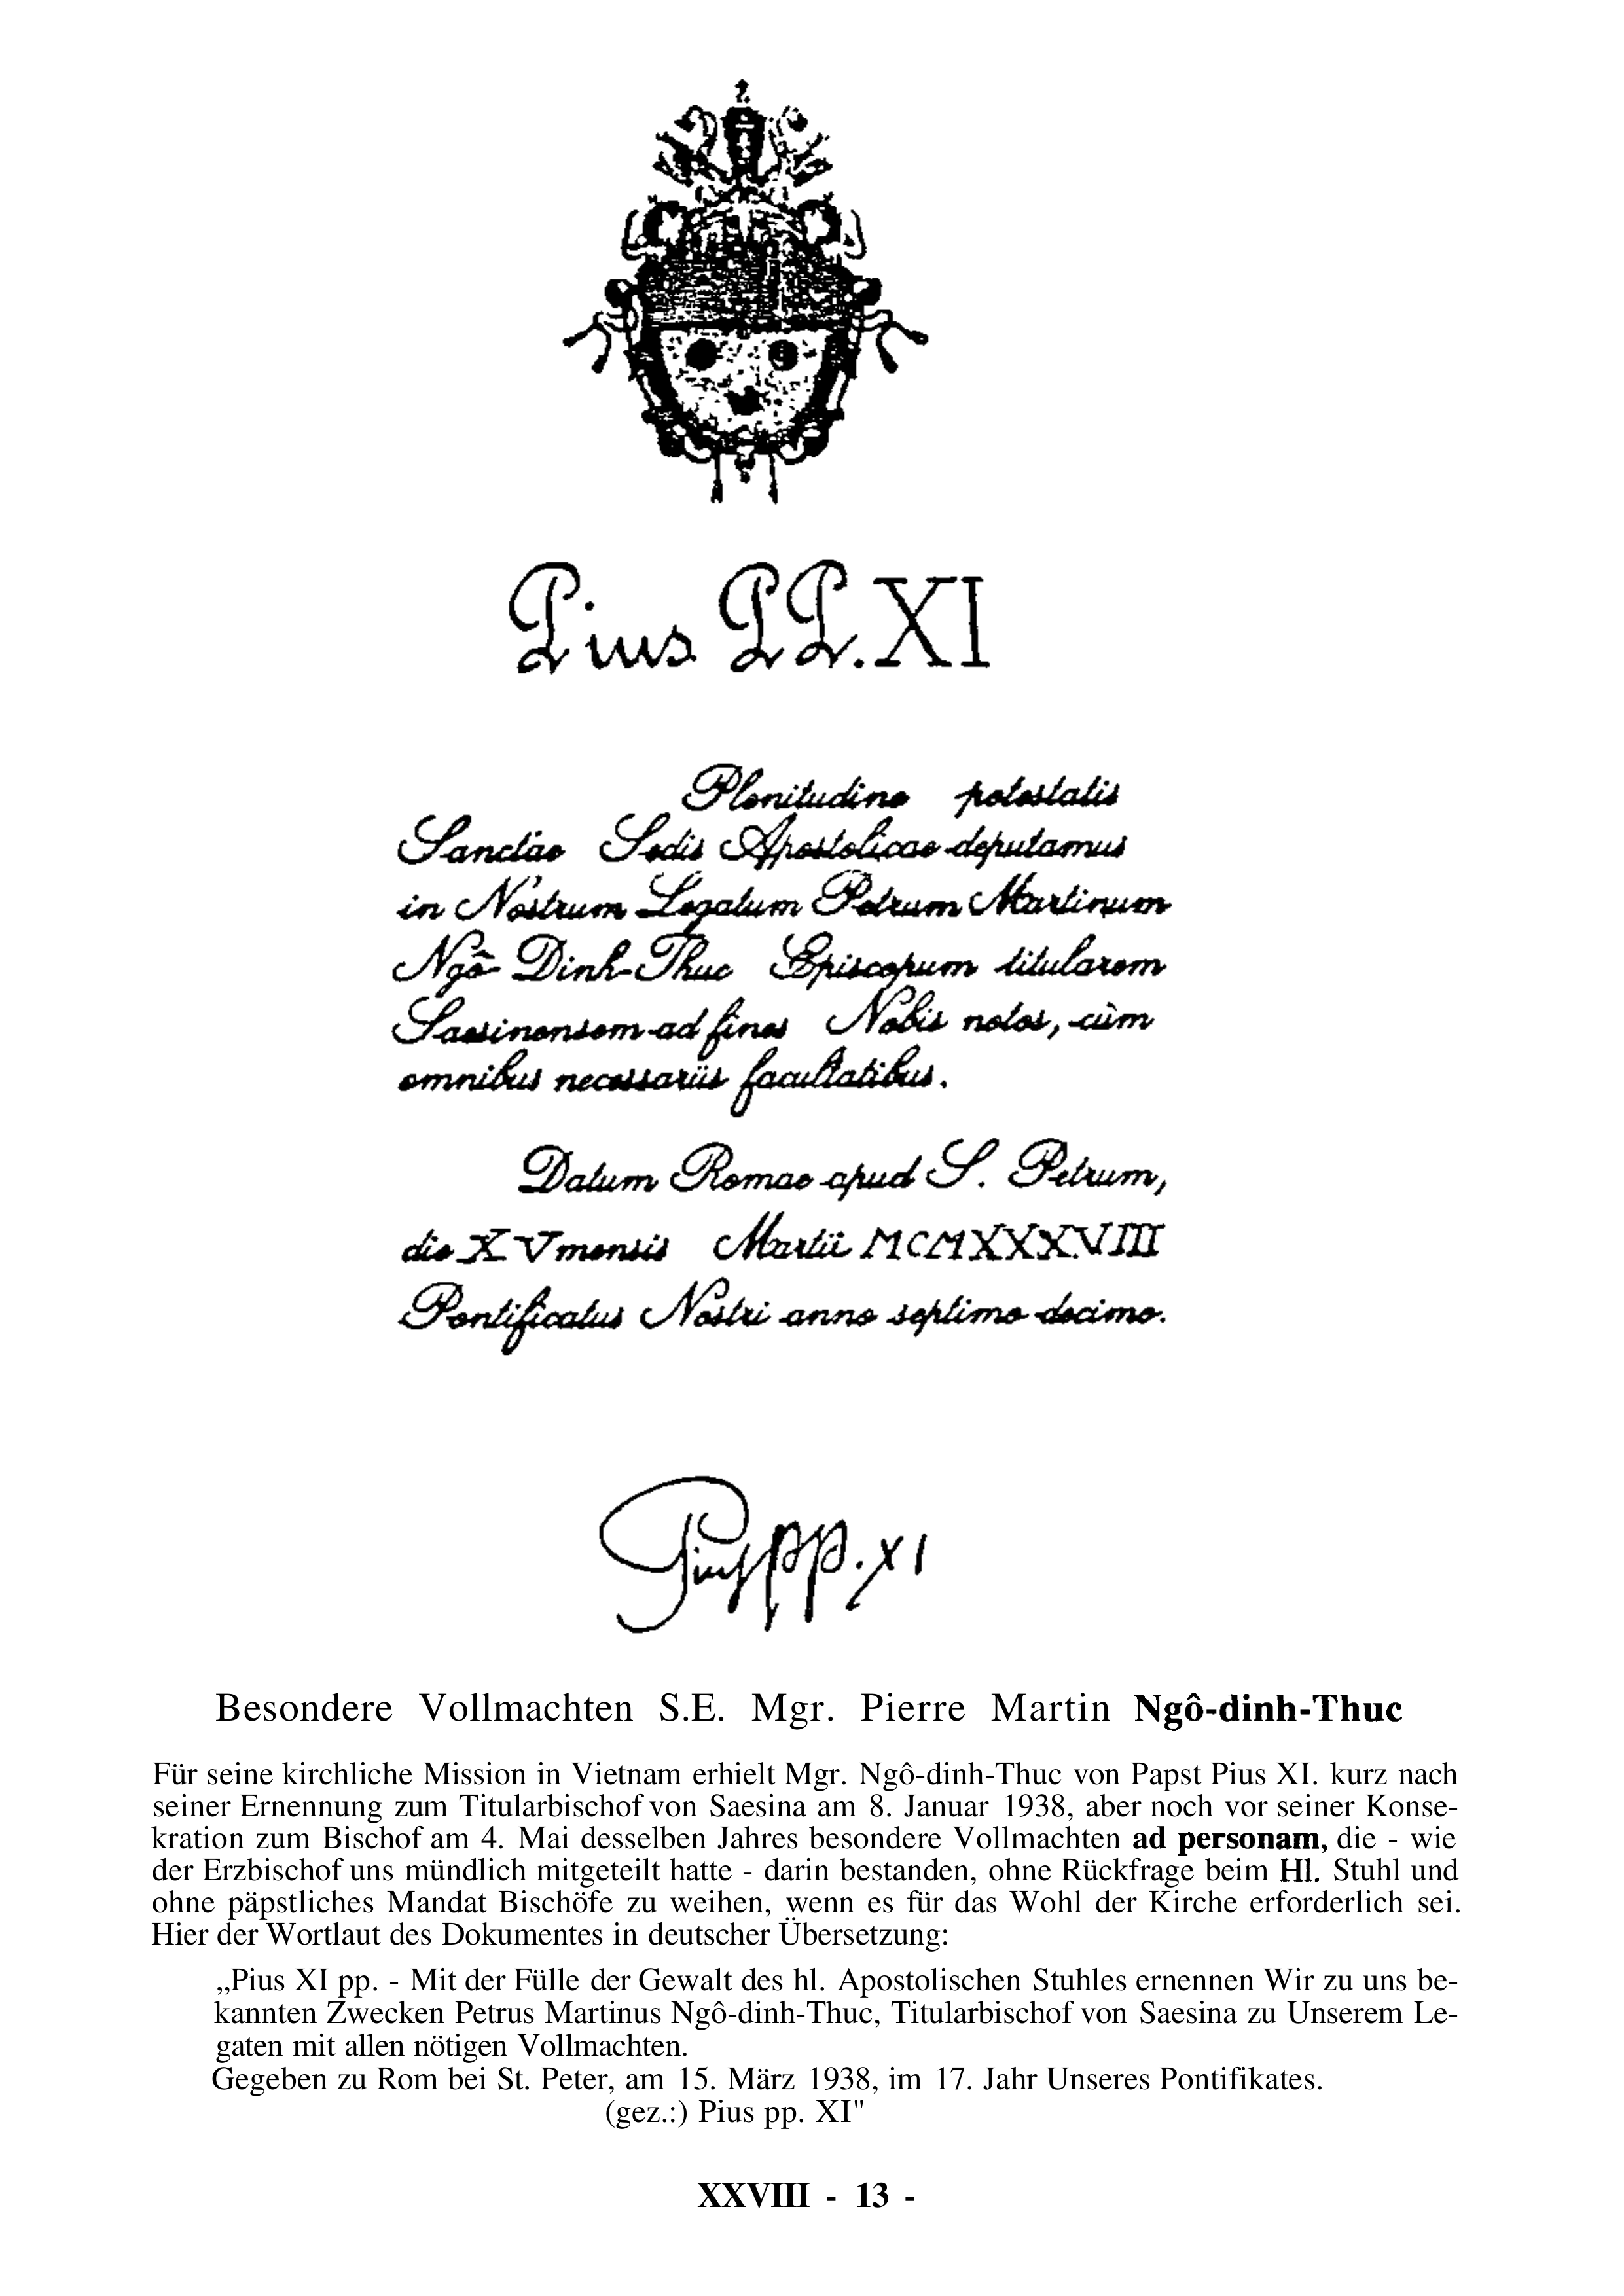 Pius PP. XI
Plenitudine potestatis
Sanctae Sedis Apostolicae deputamus
in Nostrum Legatum Petrum Martinum
Ngô-Dinh-Thuc Episcopum titularem
Saesinensem ad fines Nobis notos, cùm
omnibus necessariis facultatibus.
Datum Romae apud S. Petrum,
die XV mensis Martii MCMXXXVIII
Pontificatus Nostri anno septimo decimo.
Pius pp. XI
Besondere Vollmachten S.E. Mgr. Pierre Martin Ngô-dinh-Thuc
Für seine kirchliche Mission in Vietnam erhielt Mgr. Ngô-dinh-Thuc von Papst Pius XI. kurz nach
seiner Ernennung zum Titularbischof von Saesina am 8. Januar 1938, aber noch vor seiner Konse-
kration zum Bischof am 4. Mai desselben Jahres besondere Vollmachten ad personam, die - wie
der Erzbischof uns mündlich mitgeteilt hatte - darin bestanden, ohne Rückfrage beim Hl. Stuhl und
ohne päpstliches Mandat Bischöfe zu weihen, wenn es für das Wohl der Kirche erforderlich sei.
Hier der Wortlaut des Dokumentes in deutscher Übersetzung:
„Pius XI pp. - Mit der Fülle der Gewalt des hl. Apostolischen Stuhles ernennen Wir zu uns be-
kannten Zwecken Petrus Martinus Ngô-dinh-Thuc, Titularbischof von Saesina zu Unserem Le-
gaten mit allen nötigen Vollmachten.
Gegeben zu Rom bei St. Peter, am 15. März 1938, im 17. Jahr Unseres Pontifikates.
(gez.:) Pius pp. XI"
XXVIII - 13 -